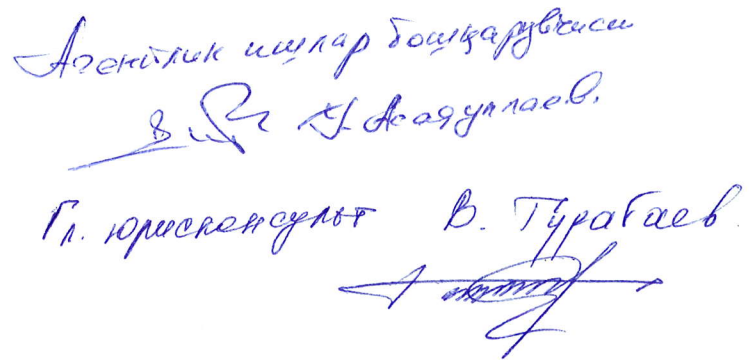 Агентлик ишлар бошқарувчиси
Х. Асадуллаев.
Гл. юрисконсульт В. Турабаев